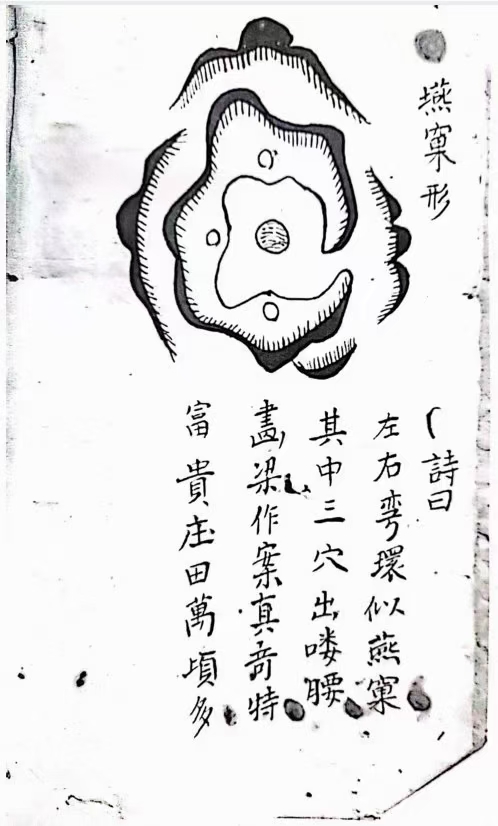 燕窠形
詩曰
左右弯環似燕窠
其中三穴出喽腰
畵梁作案真奇特
富貴庄田萬頃多